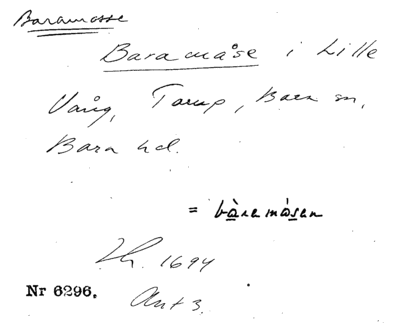 Baramosse
Baramåse i Lille
Vång, Torup, Bara sn,
Bara hd.
= bàremåsen
Lh. 1694
Nr 6296. Ant 3.